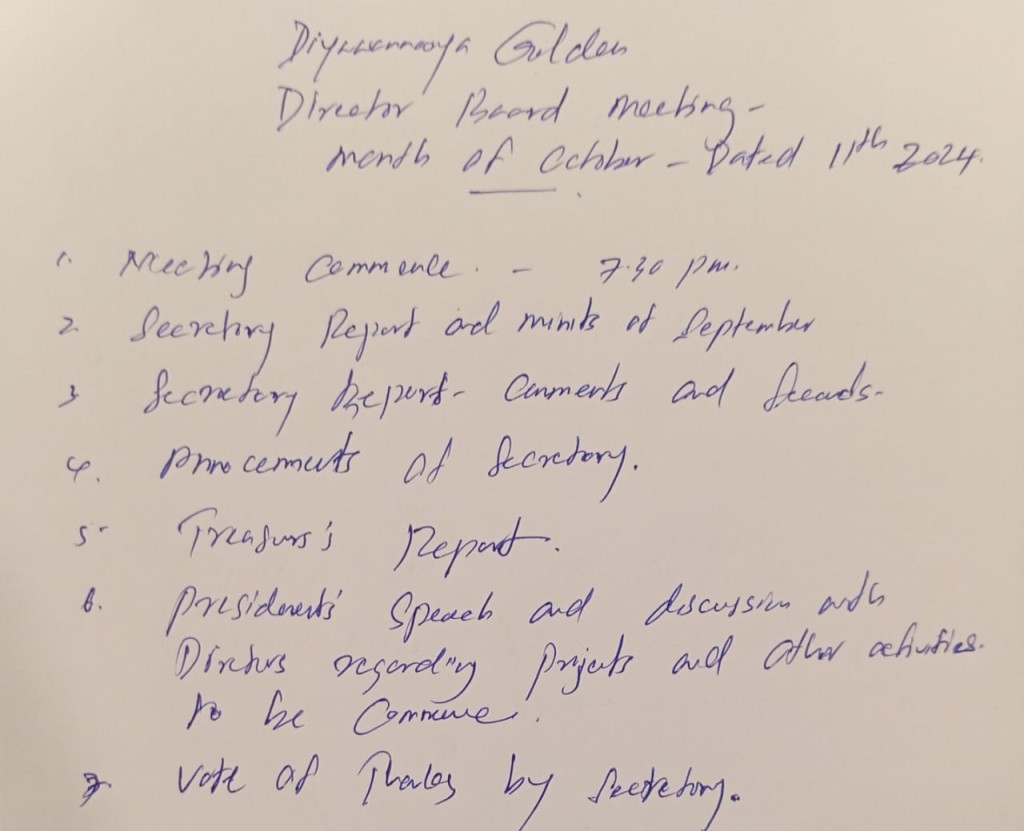 Diyawannaoya Golden
Director Board meeting -
month of October - Dated 11th 2024.
1. Meeting Commence. - 7.30 pm.
2. Secretary Report and minits of September
3 Secretary Report - Comments and Seconds -
4. Annocements of Secretary.
5- Treasurs's Report.
6. Presidents' Speach and discussion with
Directurs regarding projects and other activities.
to be Commence.
7. Vote of Thanks by Secretary.